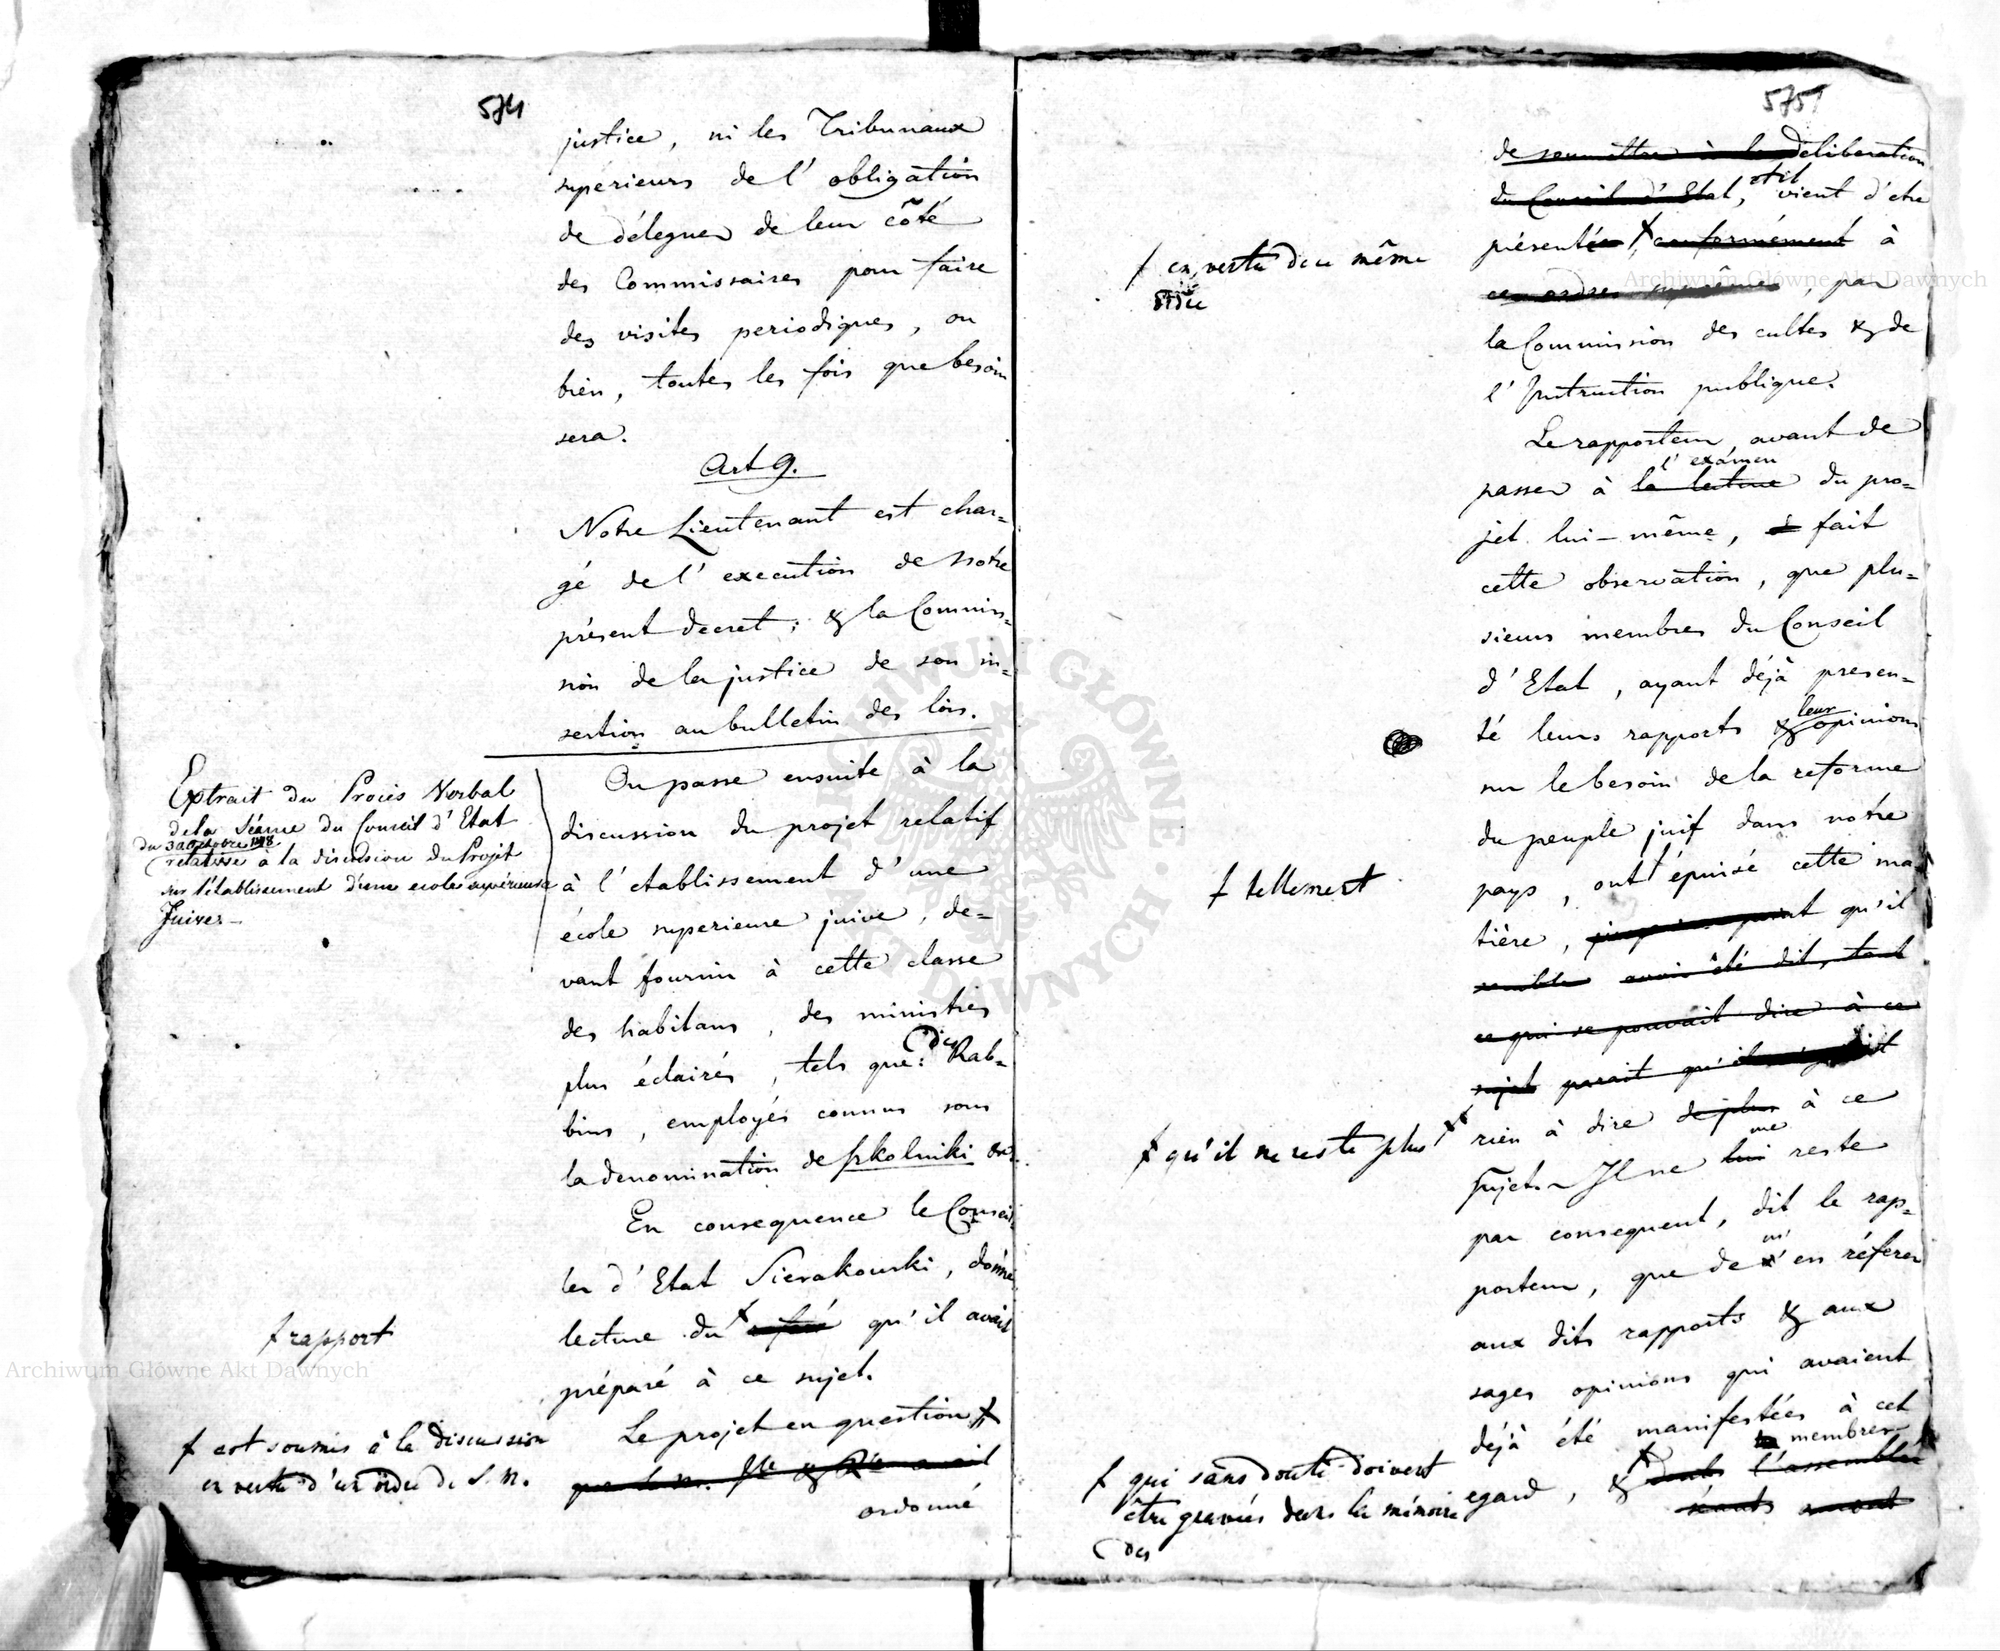 574
justice, ni les Tribunaux
superieurs de l'obligation
de déleguer de leur côté
des Commissaires pour faire
des visites periodiques, ou
bien, toutes les fois que besoin
sera.
Art 9.
Notre Lieutenant est char=
gé de l'execution de notre
présent decret; & la Commis=
sion de la justice de son in=
sertion au bulletin des lois.
Extrait du Procès Verbal
de la Séance du Conseil d'Etat
du 30 Octobre 1818
relative à la discussion du Projet
sur l'établissement d'une ecole supérieure
Juives
On passe ensuite à la
discussion du projet relatif
à l'etablissement d'une
école superieure juive, de=
vant fournir à cette classe
des habitans, des ministres
plus éclairés, tels que: des Rab=
bins, employés connus sous
la denomination de szkolniki
En consequence le Conseil
ler d'Etat Sierakowski, donne
lecture du qu'il avait
f rapport
préparé à ce sujet.
Le projet en question
f est soumis à la discussion
en vertu d'un ordre de S. M.
ordonné
575
de soumettre à la déliberation
du Conseil d'Etat, et il vient d'etre
présentée, conformément à
f en vertu d'un même
ordre
ces ordres suprêmes, par
la Commission des cultes & de
l'Instruction publique.
Le rapporteur, avant de
passer à la lecture l'exámen du pro=
jet lui-même, fait
cette observation, que plu=
sieurs membres du Conseil
d'Etat, ayant déjà presen=
té leurs rapports & leur opinions
sur le besoin de la reforme
du peuple juif dans notre
pays, ont épuisé cette ma
f tellement
tière, qu'il
semble avoir été dit, tout
ce qui se pouvait dire à ce
sujet parait qu'il
rien à dire de plus à ce
f qu'il ne reste plus
sujet. Il ne lui me reste
par consequent, dit le rap=
porteur, que de m'en réferer
aux dits rapports & aux
sages opinions qui avaient
déjà été manifestées à cet
membres
egard, & l'assemblée
séants
f qui sans doute doivent
être gravés dans la mémoire
des
Archiwum Główne Akt Dawnych
Archiwum Główne Akt Dawnych
ARCHIWUM GŁÓWNE AKT DAWNYCH